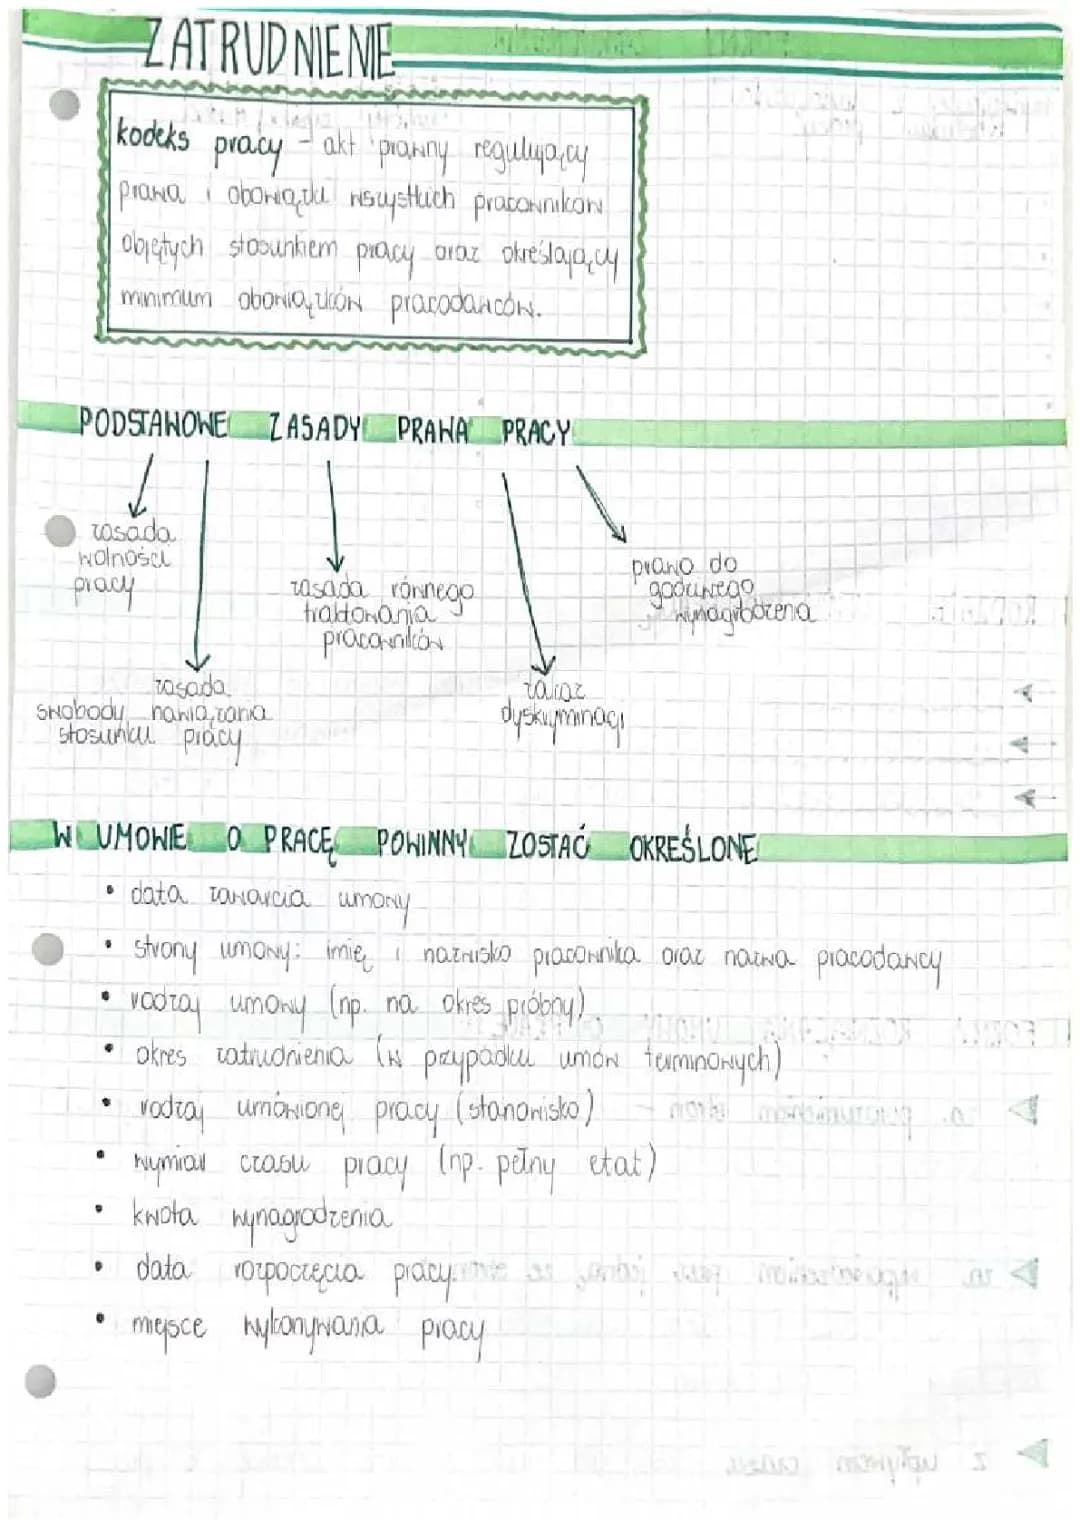 ZATRUDNIENIE
kodeks pracy - akt prawny regulujący
prawa i obowiązki wszystkich pracowników
objętych stosunkiem pracy oraz określający
minimum obowiązków pracodawców.
PODSTAWOWE ZASADY PRAWA PRACY
zasada
wolności
pracy
zasada
swobody nawiązania
stosunku pracy
zasada równego
traktowania
pracowników
zakaz
dyskryminacji
prawo do
godziwego
wynagrodzenia
W UMOWIE O PRACĘ POWINNY ZOSTAĆ OKREŚLONE
• data zawarcia umowy
• strony umowy: imię i nazwisko pracownika oraz nazwa pracodawcy
• rodzaj umowy (np. na okres próbny)
• okres zatrudnienia (w przypadku umów terminowych)
• rodzaj umówionej pracy (stanowisko)
• wymiar czasu pracy (np. pełny etat)
• kwota wynagrodzenia
• data rozpoczęcia pracy
• miejsce wykonywania pracy